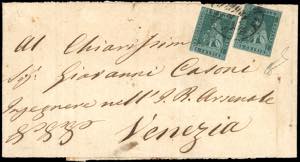 Al Chiarissimo
Sig. Giovanni Casoni
Ingegnere nell' I. R. Arsenale
Venezia